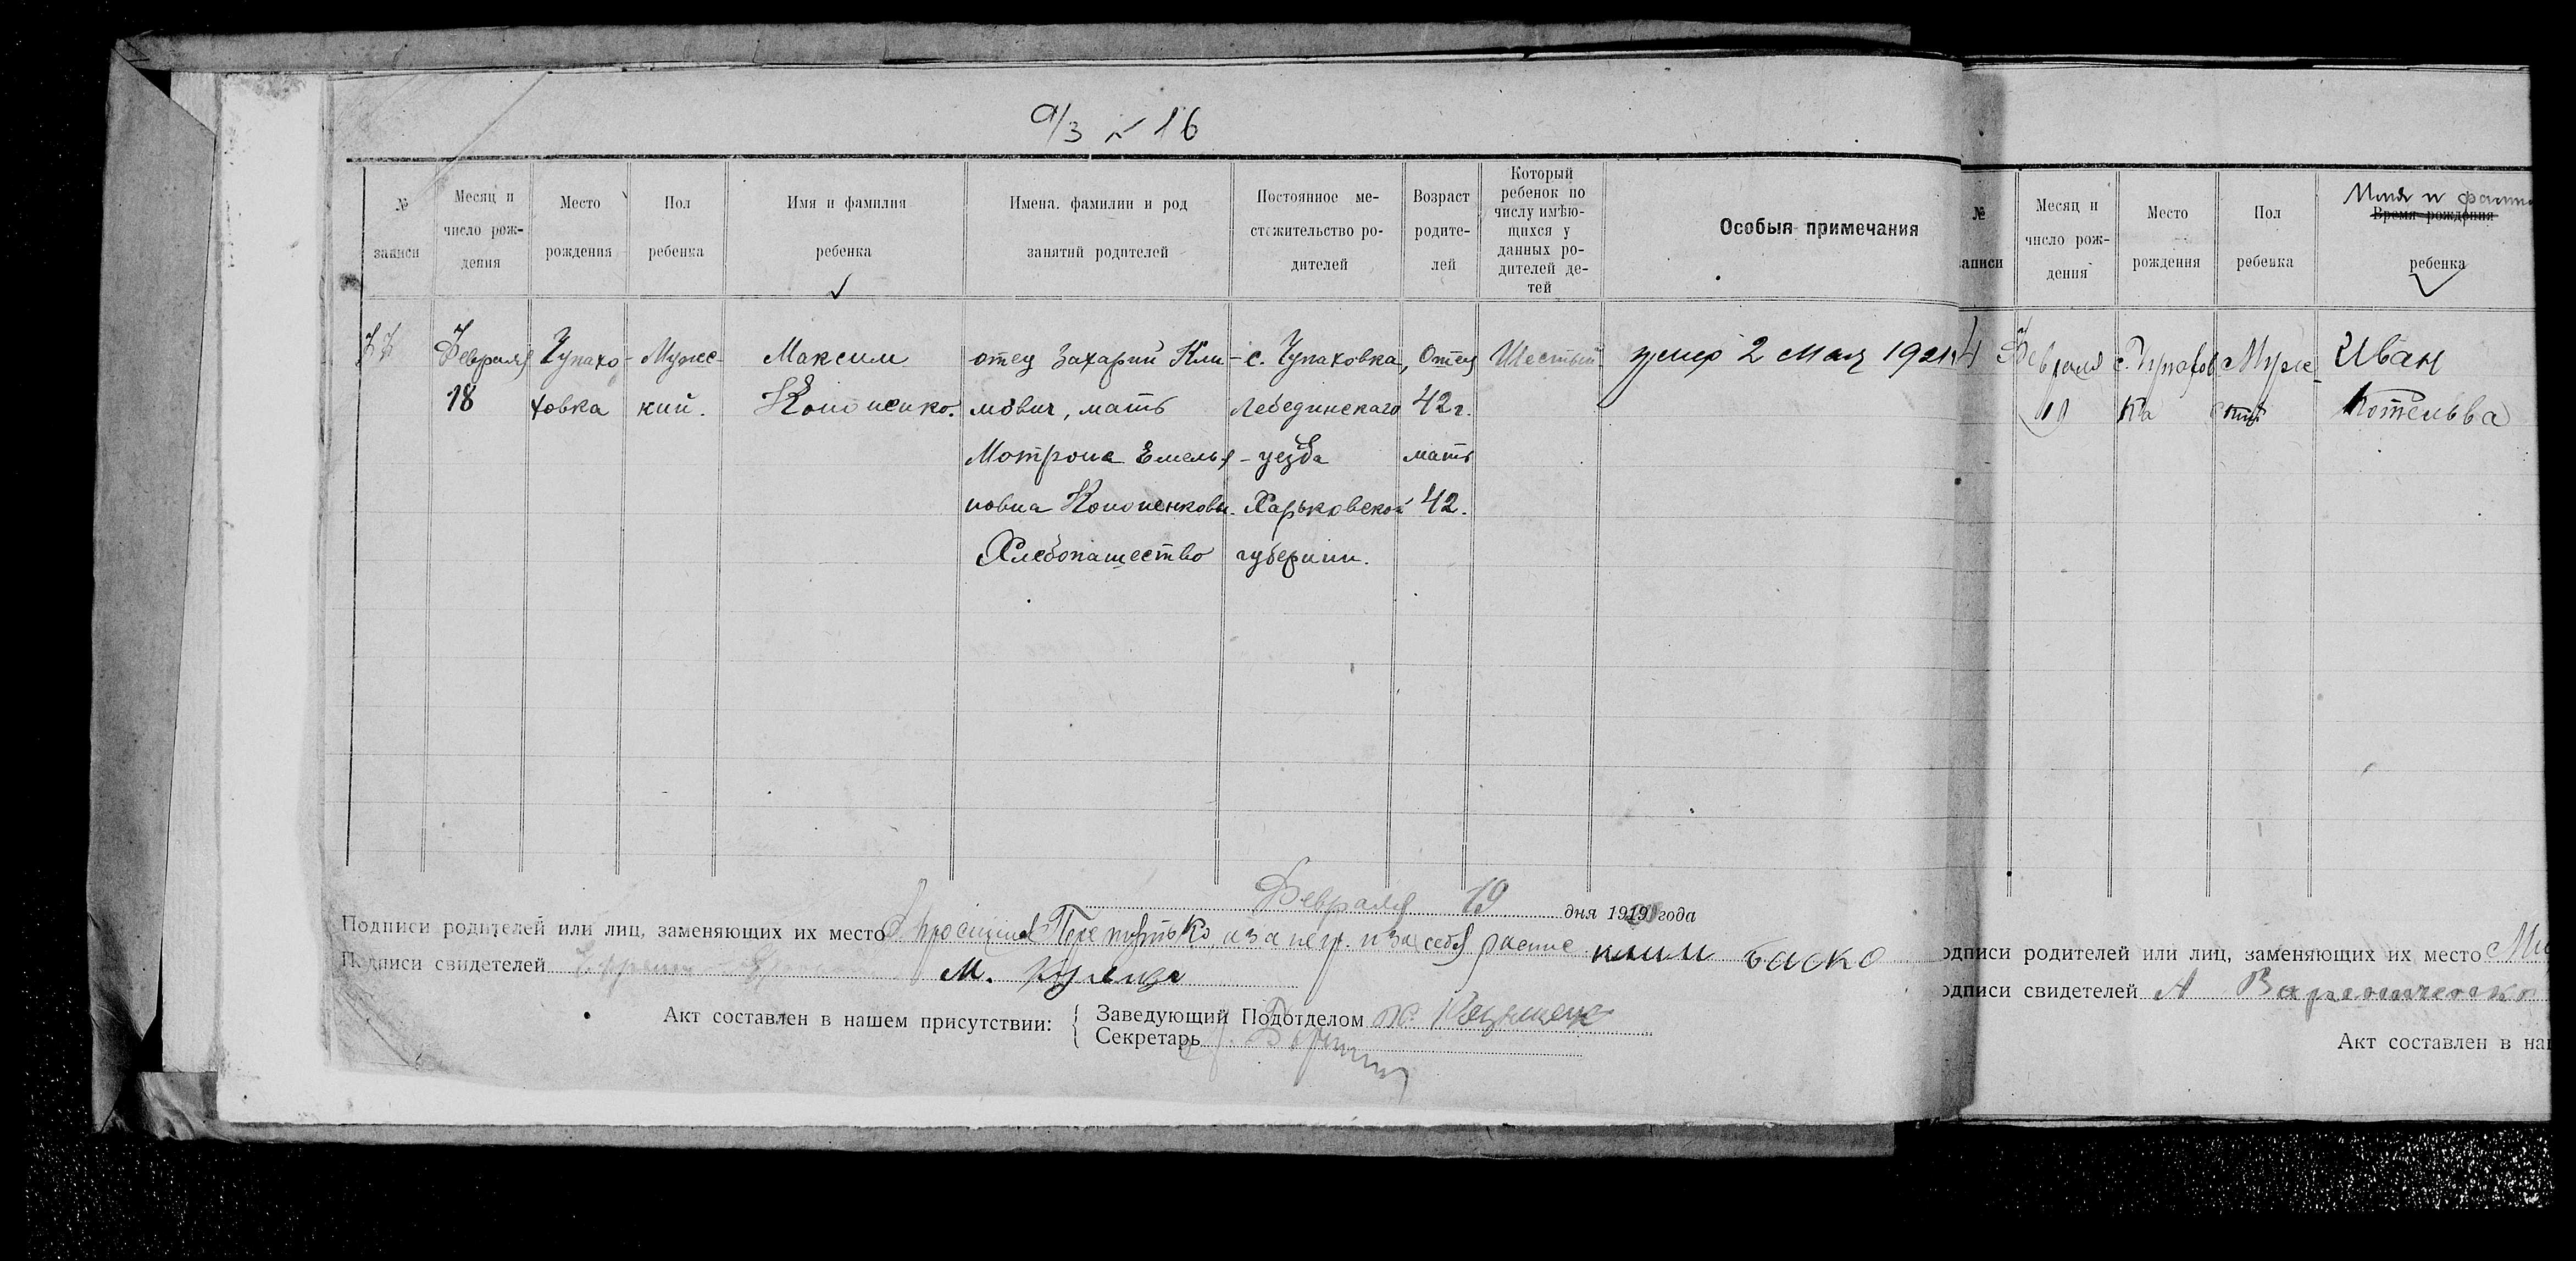 а/з № 16
№ записи
Месяц и число рождения
Место рождения
Пол ребенка
Имя и фамилия ребенка
Имена, фамилии и род занятий родителей
Постоянное местожительство родителей
Возраст родителей
Который ребенок по числу имѣющихся у данных родителей детей
Особыя примечания
Февраля
18
Чупахо-
ховка
Мужс-
кий.
Максим
Кононенко.
отец Захарий Кли-
мович, мать
Мотрона Емелья-
новна Кононенковы.
Хлебопашество
с. Чупаховка,
Лебединскаго
уезда
Харьковской
губернии.
Отец
42 г.
мать
42.
Шестый
умер 2 мая 1921
Февраля 19 дня 1919 года
Подписи родителей или лиц, заменяющих их место
Подписи свидетелей
М.
Акт составлен в нашем присутствии:
Заведующий Подотделом
Секретарь
№ записи
Месяц и число рождения
Место рождения
Пол ребенка
Имя и фамил
Время рождения
ребенка
4
Февраля
Муже
Иван
Котельва
ка
одписи родителей или лиц, заменяющих их место
одписи свидетелей А
Акт составлен в на